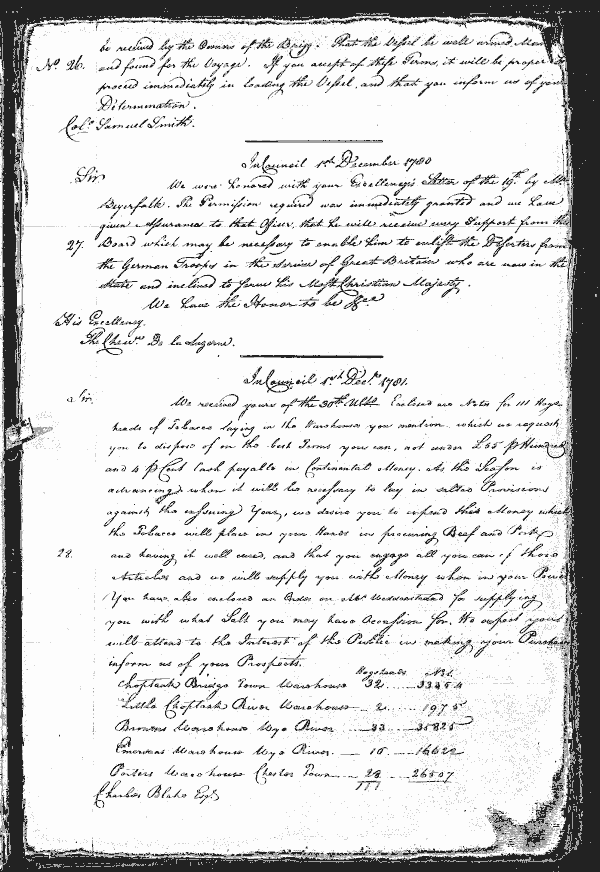 be received by the Owners of the Brigg. That the Vessel be well armed Man
No. 26. and found for the Voyage. If you accept of these Terms, it will be proper to
proceed immediately in loading the Vessel, and that you inform us of your
Determination.
Colo. Samuel Smith.
In Council 1st December 1780
Sir
We were honored with your Excellency's Letter of the 19th. by Mr.
Beyerfalk. The Permission required was immediately granted and we have
given Assurances to that Officer, that he will receive every Support from the
27. Board which may be necessary to enable him to enlist the Deserters from
the German Troops in the Service of Great Britain who are now in the
State and inclined to serve his Most Christian Majesty.
We have the Honor to be &ca
His Excellency
The Chevr. De la Luzerne.
In Council 1st Decr. 1781.
Sir.
We received yours of the 30th Ulto. Enclosed are Notes for 111 Hogs
heads of Tobacco laying in the Warehouses you mention, which we request
you to dispose of on the best Terms you can, not under £55 ⅌ Hundred
and 4 ⅌ Cent Cash payable in Continental Money. As the Season is
advancing when it will be necessary to lay in salted Provisions
against the ensuing Year, we desire you to expend this Money which
the Tobacco will place in your Hands in procuring Beef and Pork
28. and having it well cured, and that you engage all you can of those
Articles and we will supply you with Money when in your Power
You have also enclosed an Order on Mr. for supplying
you with what Salt you may have Occasion for. We expect you
will attend to the Interest of the Public in making your Purchases
inform us of your Prospects.
Hogsheads Nt.
Choptank Bridge Town Warehouse 32 33354
Little Choptank River Warehouse 2 1975
Browns Warehouse Wye River 33 35825
Emersons Warehouse Wye River 16 16622
Porters Warehouse Chester Town 28 26507
111
Charles Blake Esqr.